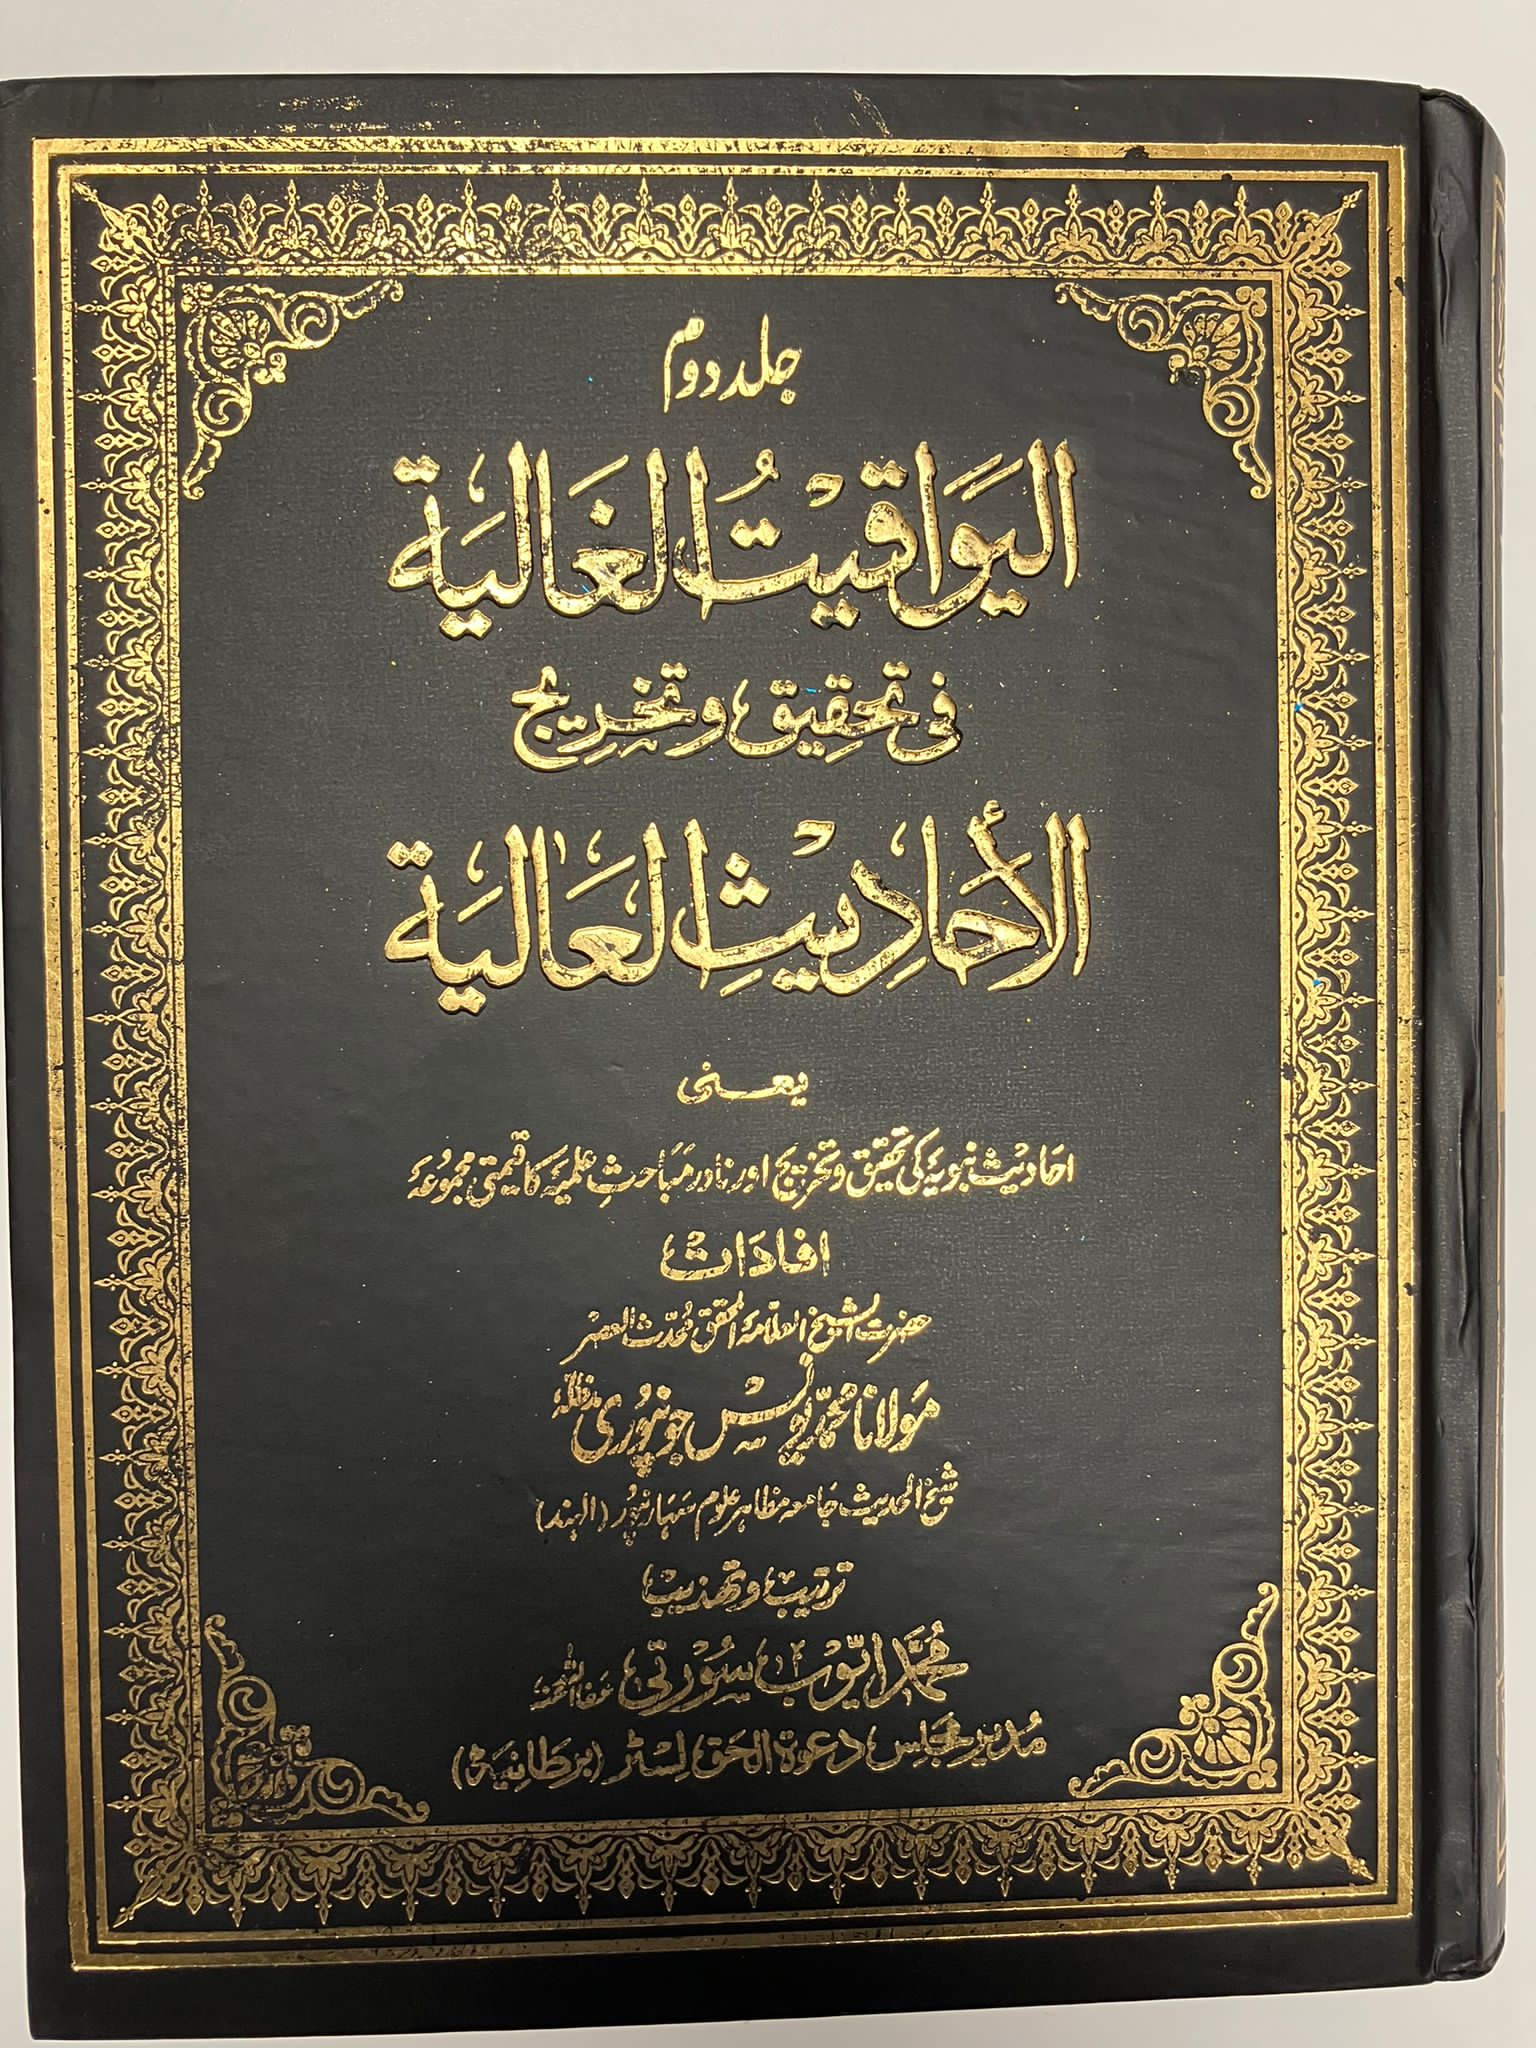 جلد دوم
اليَوَاقيْتُ الغَاليَة
فى تحقِيق وتخرِيج
الأحَادِيْثِ العَاليَة
یعنی
احادیث نبویہ کی تحقیق وتخریج اور نادر مَبَاحثِ علمیَہ کا قیمتی مجمُوعَہ
افادَات
حضرت الشیخ العلامۃ المحقق مُحدّث العصر
مَولانا محمّد یونس جونپُوری مدظلہٗ
شیخ الحدیث جَامعہ مظاہر علوم سَہارنپُور (الہند)
ترتیب و تہذیب
مُحَمَّد ایّوبْ سُورَتی عفا اللہ عنہ
مُدیر مجلِس دعوۃ الحَق لِسٹر (برَطانِیَہ)